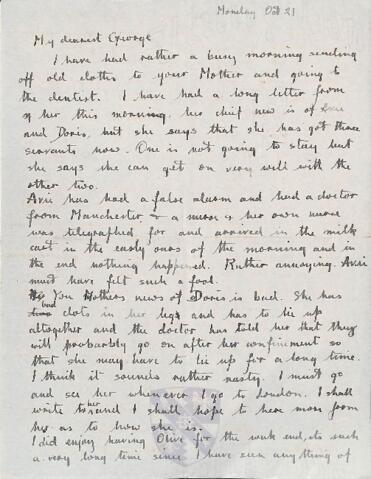 Monday Oct 21
My dearest George
I have had rather a busy morning sending
off old clothes to your Mother and going to
the dentist. I have had a long letter from
her this morning, her chief new is of Avie
and Doris, but she says that she has got three
servants now. One is not going to stay but
she says she can get on very well with the
other two.
Avie has had a false alarm and had a doctor
from Manchester & a nurse & her own nurse
was telegraphed for and arrived in the milk
cart in the early ours of the morning and in
the end nothing happened. Rather annoying. Avie
must have felt such a fool.
You Mothers news of Doris is bad. She has
had clots in her legs and has to lie up
altogether and the doctor has told her that they
will probably go on after her confinement so
that she may have to lie up for a long time.
I think it sounds rather nasty. I must go
and see her whenever I go to London. I shall
write to her and I shall hope to hear more from
her as to how she is.
I did enjoy having Olive for the week end, its such
a very long time since I have seen anything of